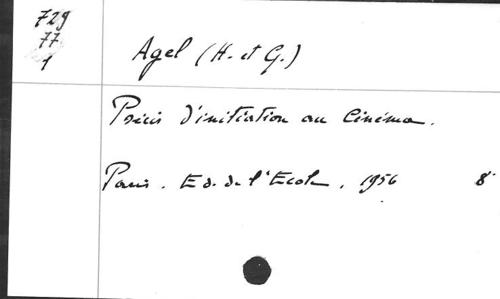 729
77
1
Agel (H. et G.)
Précis d'initiation au Cinéma.
Paris. Ed. de l'Ecole, 1956 8°